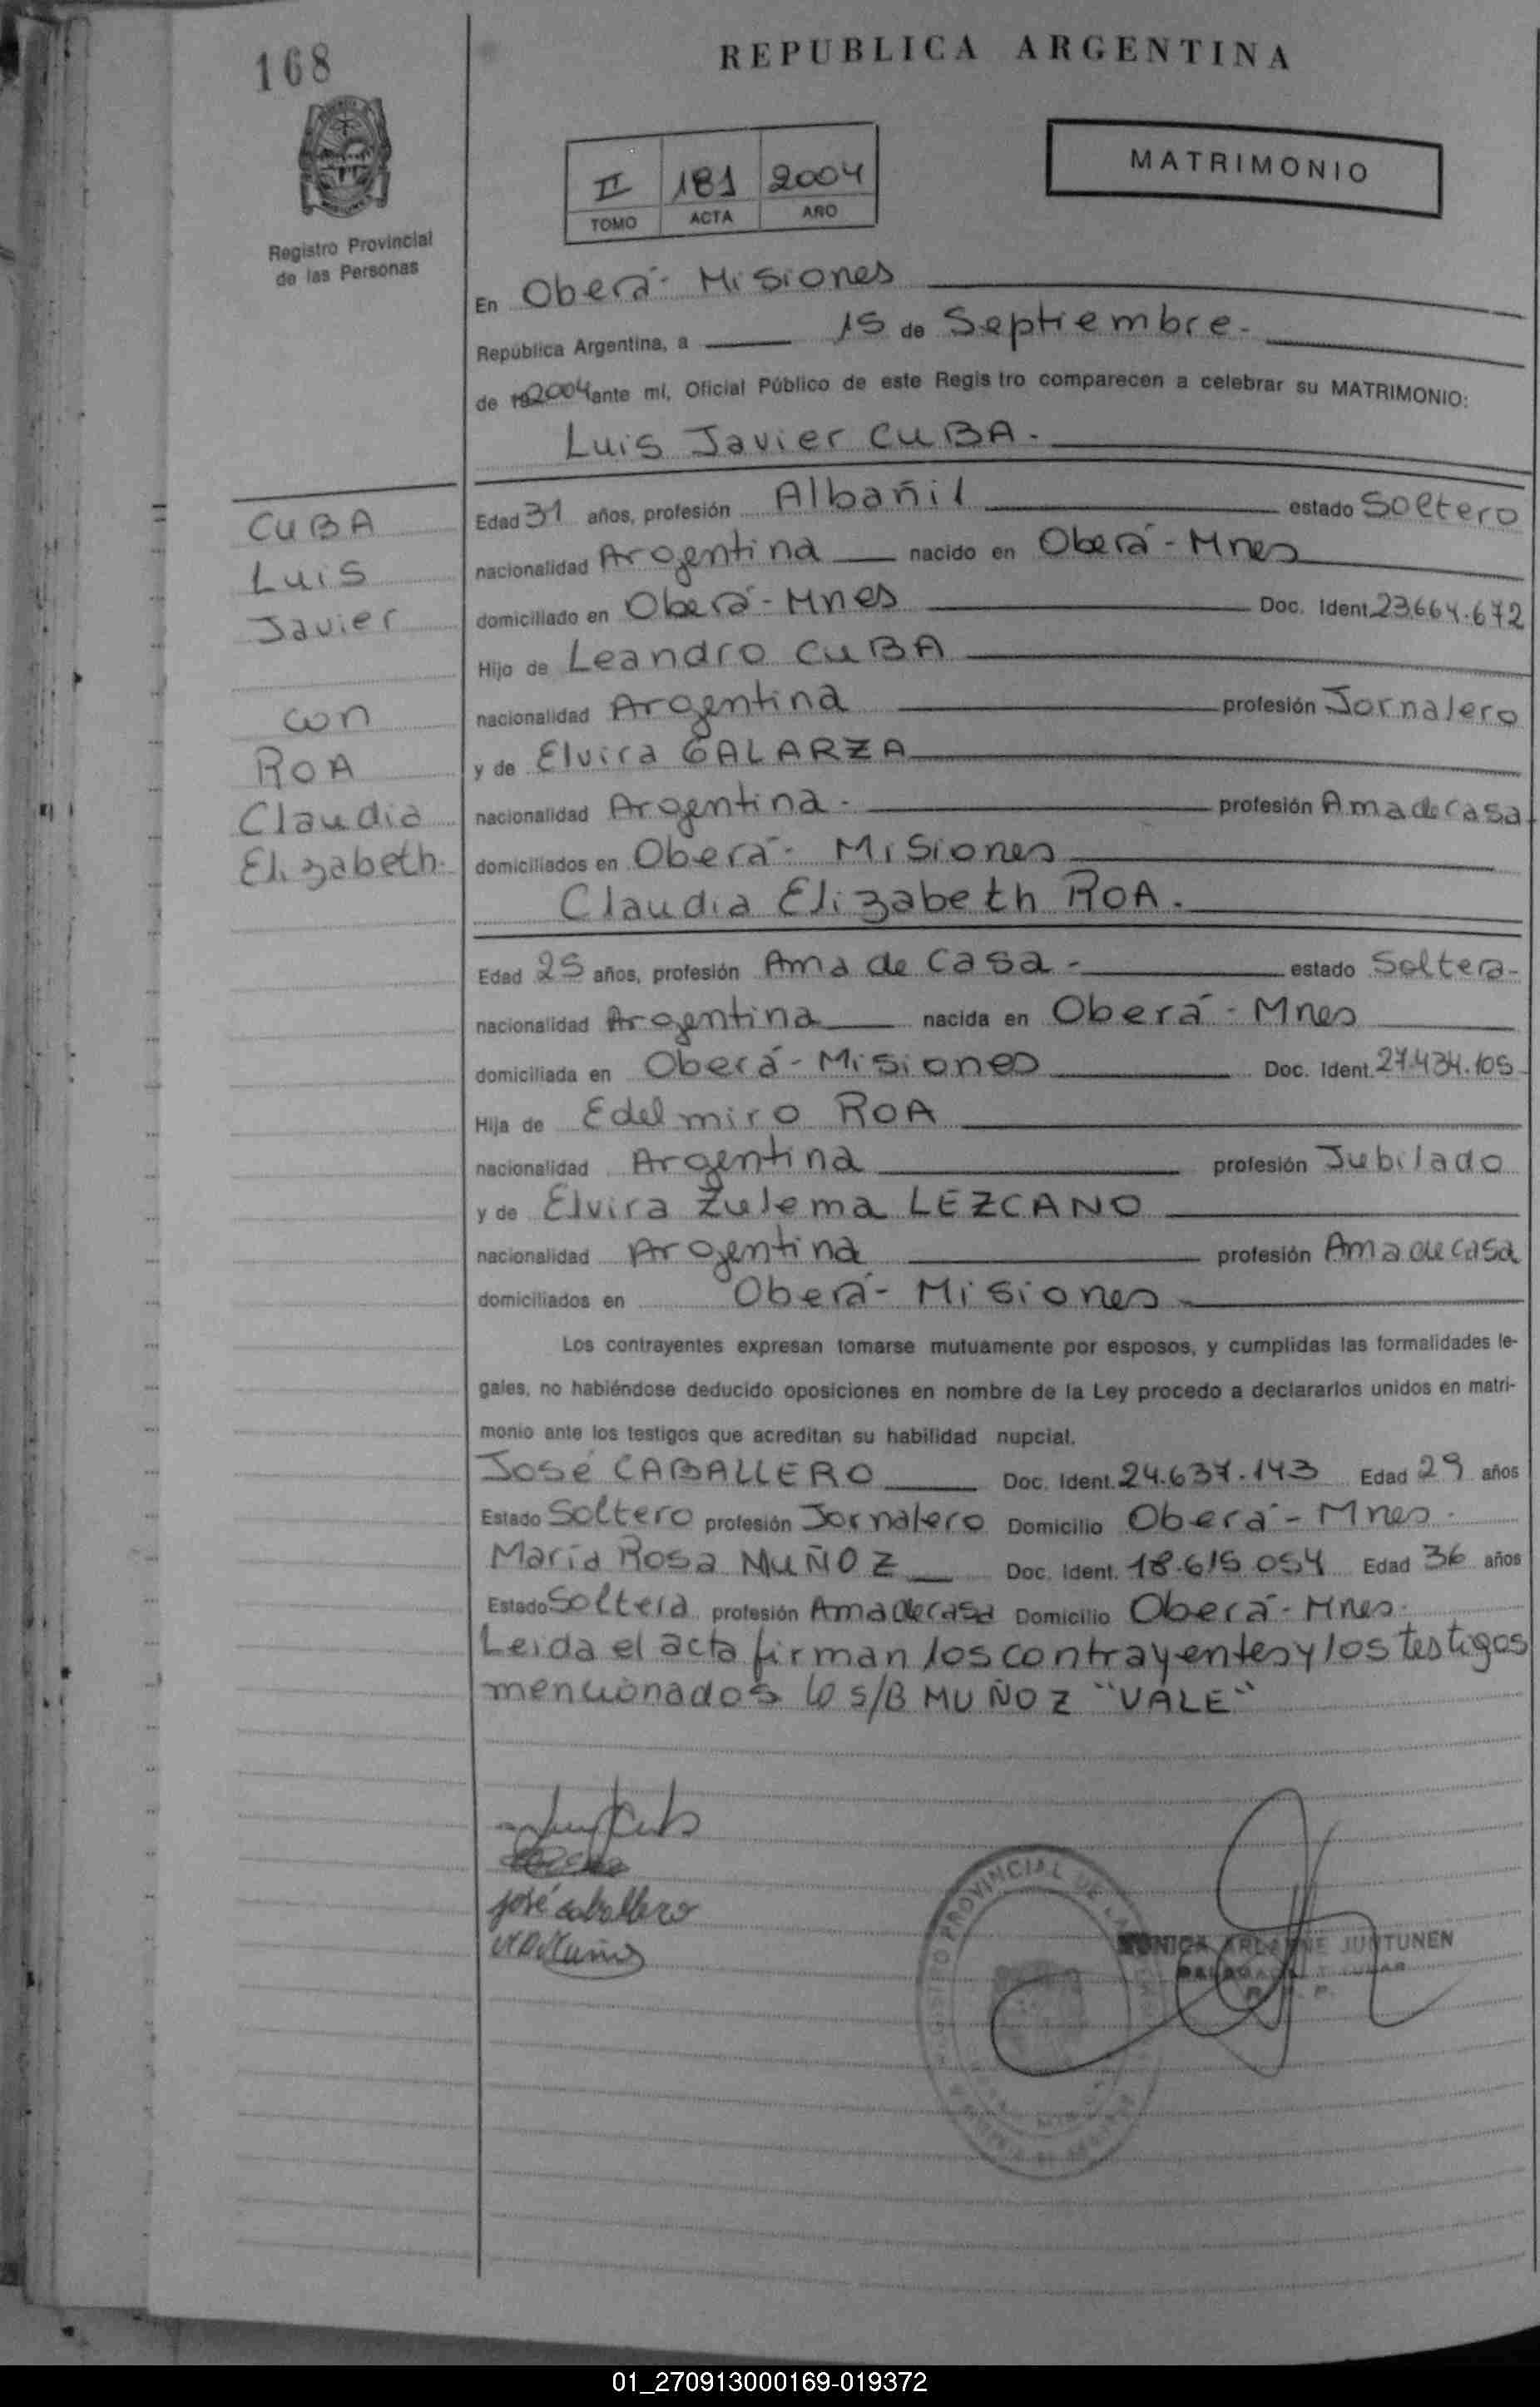 168
REPUBLICA ARGENTINA
MATRIMONIO
II 181 2004
TOMO ACTA AÑO
Registro Provincial
de las Personas
En Oberá - Misiones
República Argentina, a 15 de Septiembre.
de 192004 ante mí, Oficial Público de este Regis tro comparecen a celebrar su MATRIMONIO:
Luis Javier CUBA.
CUBA
Luis
Javier
con
ROA
Claudia
Elizabeth.
Edad 31 años, profesión Albañil estado Soltero
nacionalidad Argentina nacido en Oberá - Mnes
domiciliado en Oberá - Mnes Doc. Ident. 23.664.672
Hijo de Leandro CUBA
nacionalidad Argentina profesión Jornalero
y de Elvira GALARZA
nacionalidad Argentina. profesión Ama de Casa
domiciliados en Oberá - Misiones
Claudia Elizabeth ROA.
Edad 25 años, profesión Ama de Casa - estado Soltera -
nacionalidad Argentina nacida en Oberá - Mnes
domiciliada en Oberá - Misiones Doc. Ident. 27.434.105
Hija de Edelmiro ROA
nacionalidad Argentina profesión Jubilado
y de Elvira Zulema LEZCANO
nacionalidad Argentina profesión Ama de casa
domiciliados en Oberá - Misiones
Los contrayentes expresan tomarse mutuamente por esposos, y cumplidas las formalidades le-
gales, no habiéndose deducido oposiciones en nombre de la Ley procedo a declararlos unidos en matri-
monio ante los testigos que acreditan su habilidad nupcial.
José CABALLERO Doc. Ident. 24.637.143 Edad 29 años
Estado Soltero profesión Jornalero Domicilio Oberá - Mnes.
María Rosa MUÑOZ Doc. Ident. 18.615.054 Edad 36 años
Estado Soltera profesión Ama de casa Domicilio Oberá - Mnes.
Leida el acta firman los contrayentes y los testigos
mencionados lo s/B MUÑOZ "VALE"
josé caballero
PROVINCIAL DE
JUNTUNEN
01_270913000169-019372